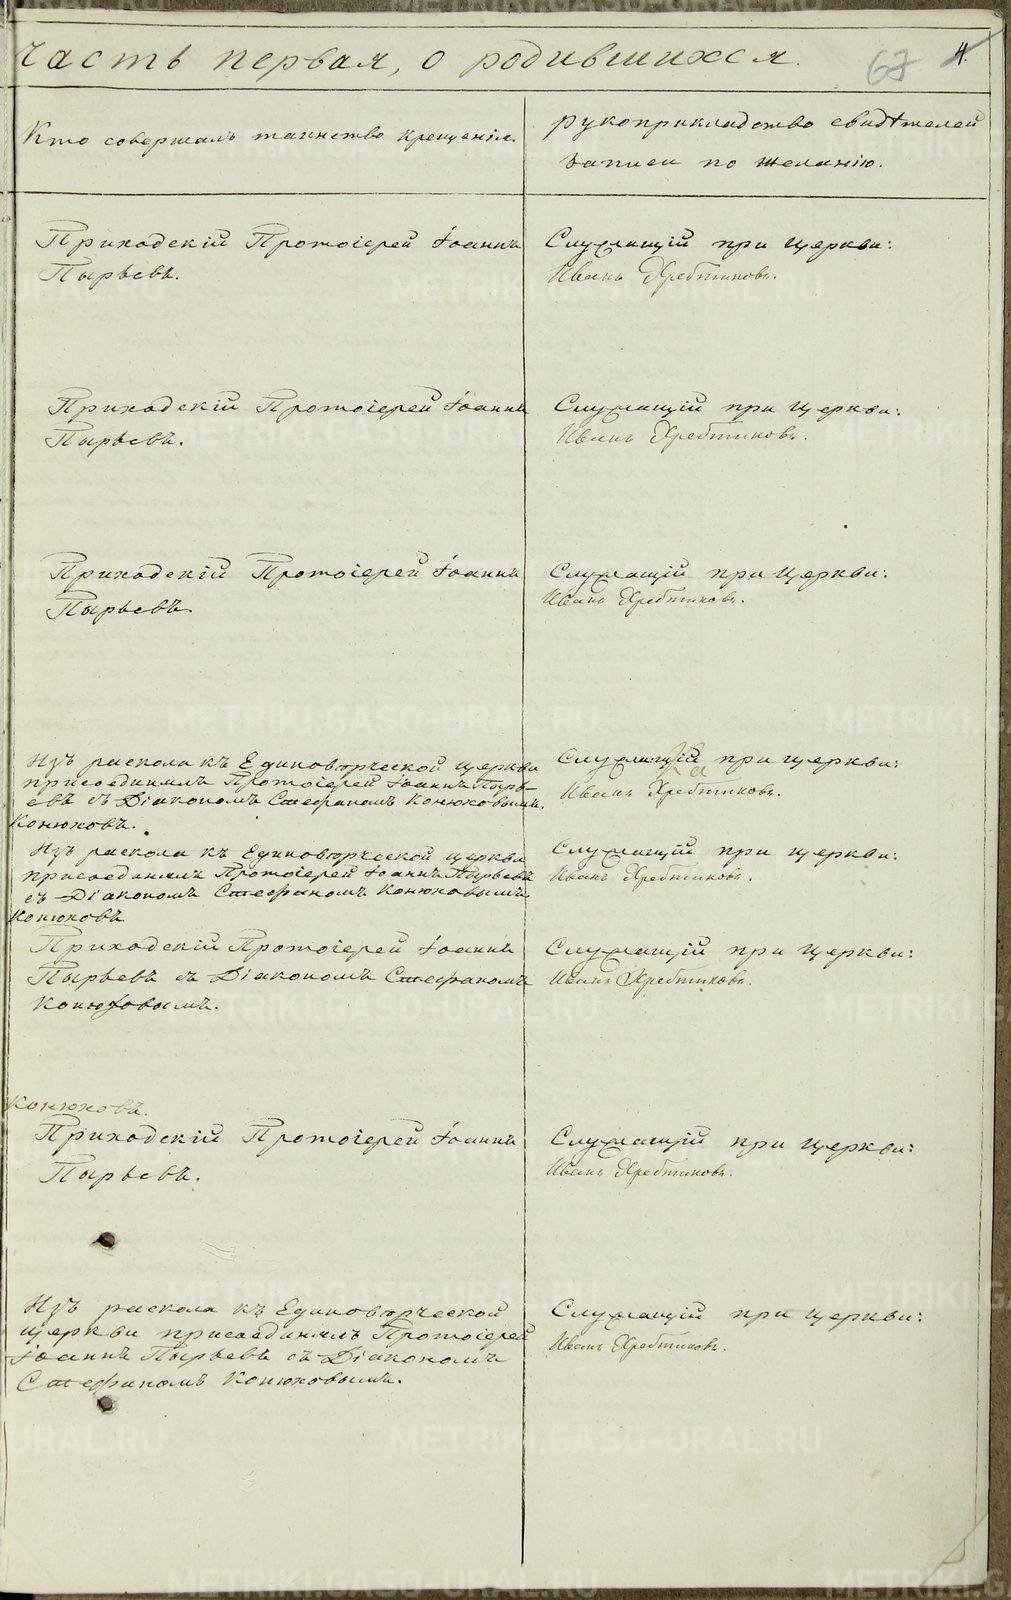 Часть первая, о родившихся.
67 4.
Кто совершалъ таинство крещенія.
рукоприкладство свидѣтелей
записи по желанію.
Приходскій Протоіерей Іоаннъ
Пырьевъ.
Служащій при церкви:
Иванъ Хребтиковъ.
Приходскій Протоіерей Іоаннъ
Пырьевъ.
Служащій при церкви:
Иванъ Хребтиковъ.
Приходскій Протоіерей Іоаннъ
Пырьевъ.
Служащій при церкви:
Иванъ Хребтиковъ.
Изъ раскола къ Единовѣрческой церкви
присоединялъ Протоіерей Іоаннъ Пырь-
евъ съ Діакономъ Стефаномъ Конюховымъ.
Конюховъ.
Служащій при церкви:
Иванъ Хребтиковъ.
Изъ раскола къ Единовѣрческой церкви
присоединялъ Протоіерей Іоаннъ Пырьевъ
съ Діакономъ Стефаномъ Конюховымъ.
Конюховъ
Служащій при церкви:
Иванъ Хребтиковъ.
Приходскій Протоіерей Іоаннъ
Пырьевъ съ Діакономъ Стефаномъ
Конюховымъ.
Служащій при церкви:
Иванъ Хребтиковъ.
Конюховъ.
Приходскій Протоіерей Іоаннъ
Пырьевъ.
Служащій при церкви:
Иванъ Хребтиковъ.
Изъ раскола къ Единовѣрческой
церкви присоединялъ Протоіерей
Іоаннъ Пырьевъ съ Діакономъ
Стефаномъ Конюховымъ.
Служащій при церкви:
Иванъ Хребтиковъ.
METRIKI.GASO-URAL.RU